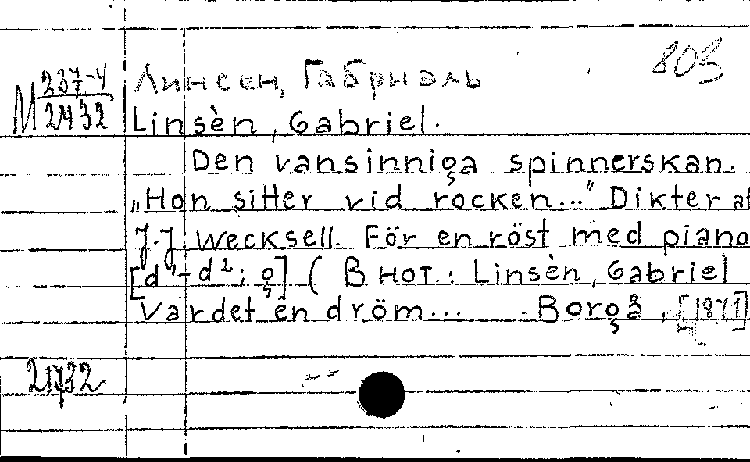 803
M 237-4
2432
Линсен, Габриэль
Linsèn, Gabriel.
Den vansinniga spinnerskan.
„Hon sitter vid rocken..." Dikter af
J.J. Wecksell. För en röst med piano
[d¹-d²; g] ( В нот: Linsèn, Gabriel
Vardet en dröm... Borgå, [1871]